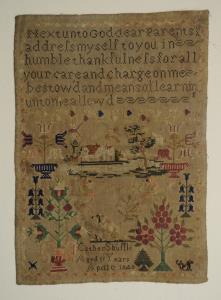 Next unto God dear Parents I
address myself to you in
humble thankfulness for all
your care and charge on me
bestowd and means of learning
unto me allowd
Esther
Aged 11 Years
April